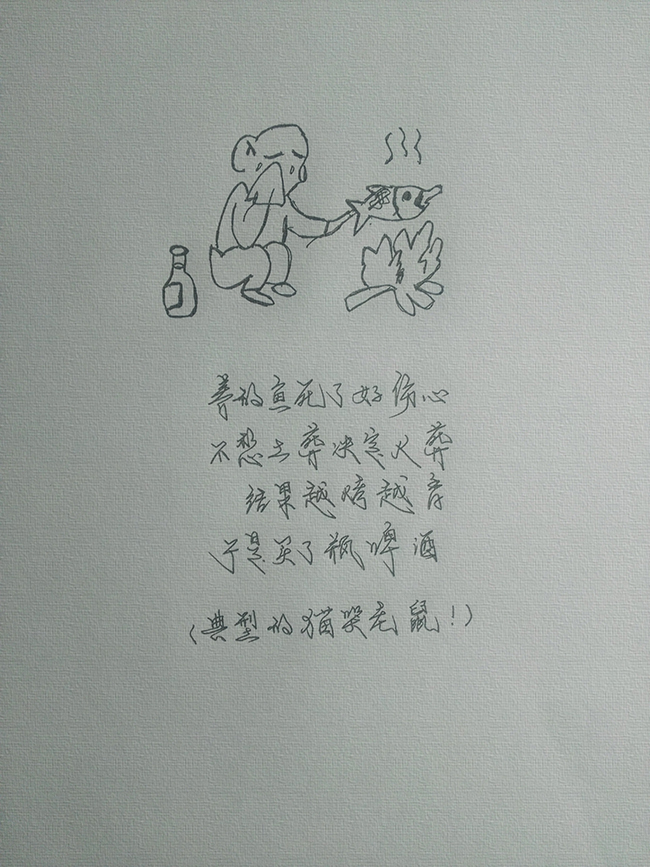 养的鱼死了好伤心
不想土葬决定火葬
结果越烤越香
于是买了瓶啤酒
(典型的猫哭老鼠!)